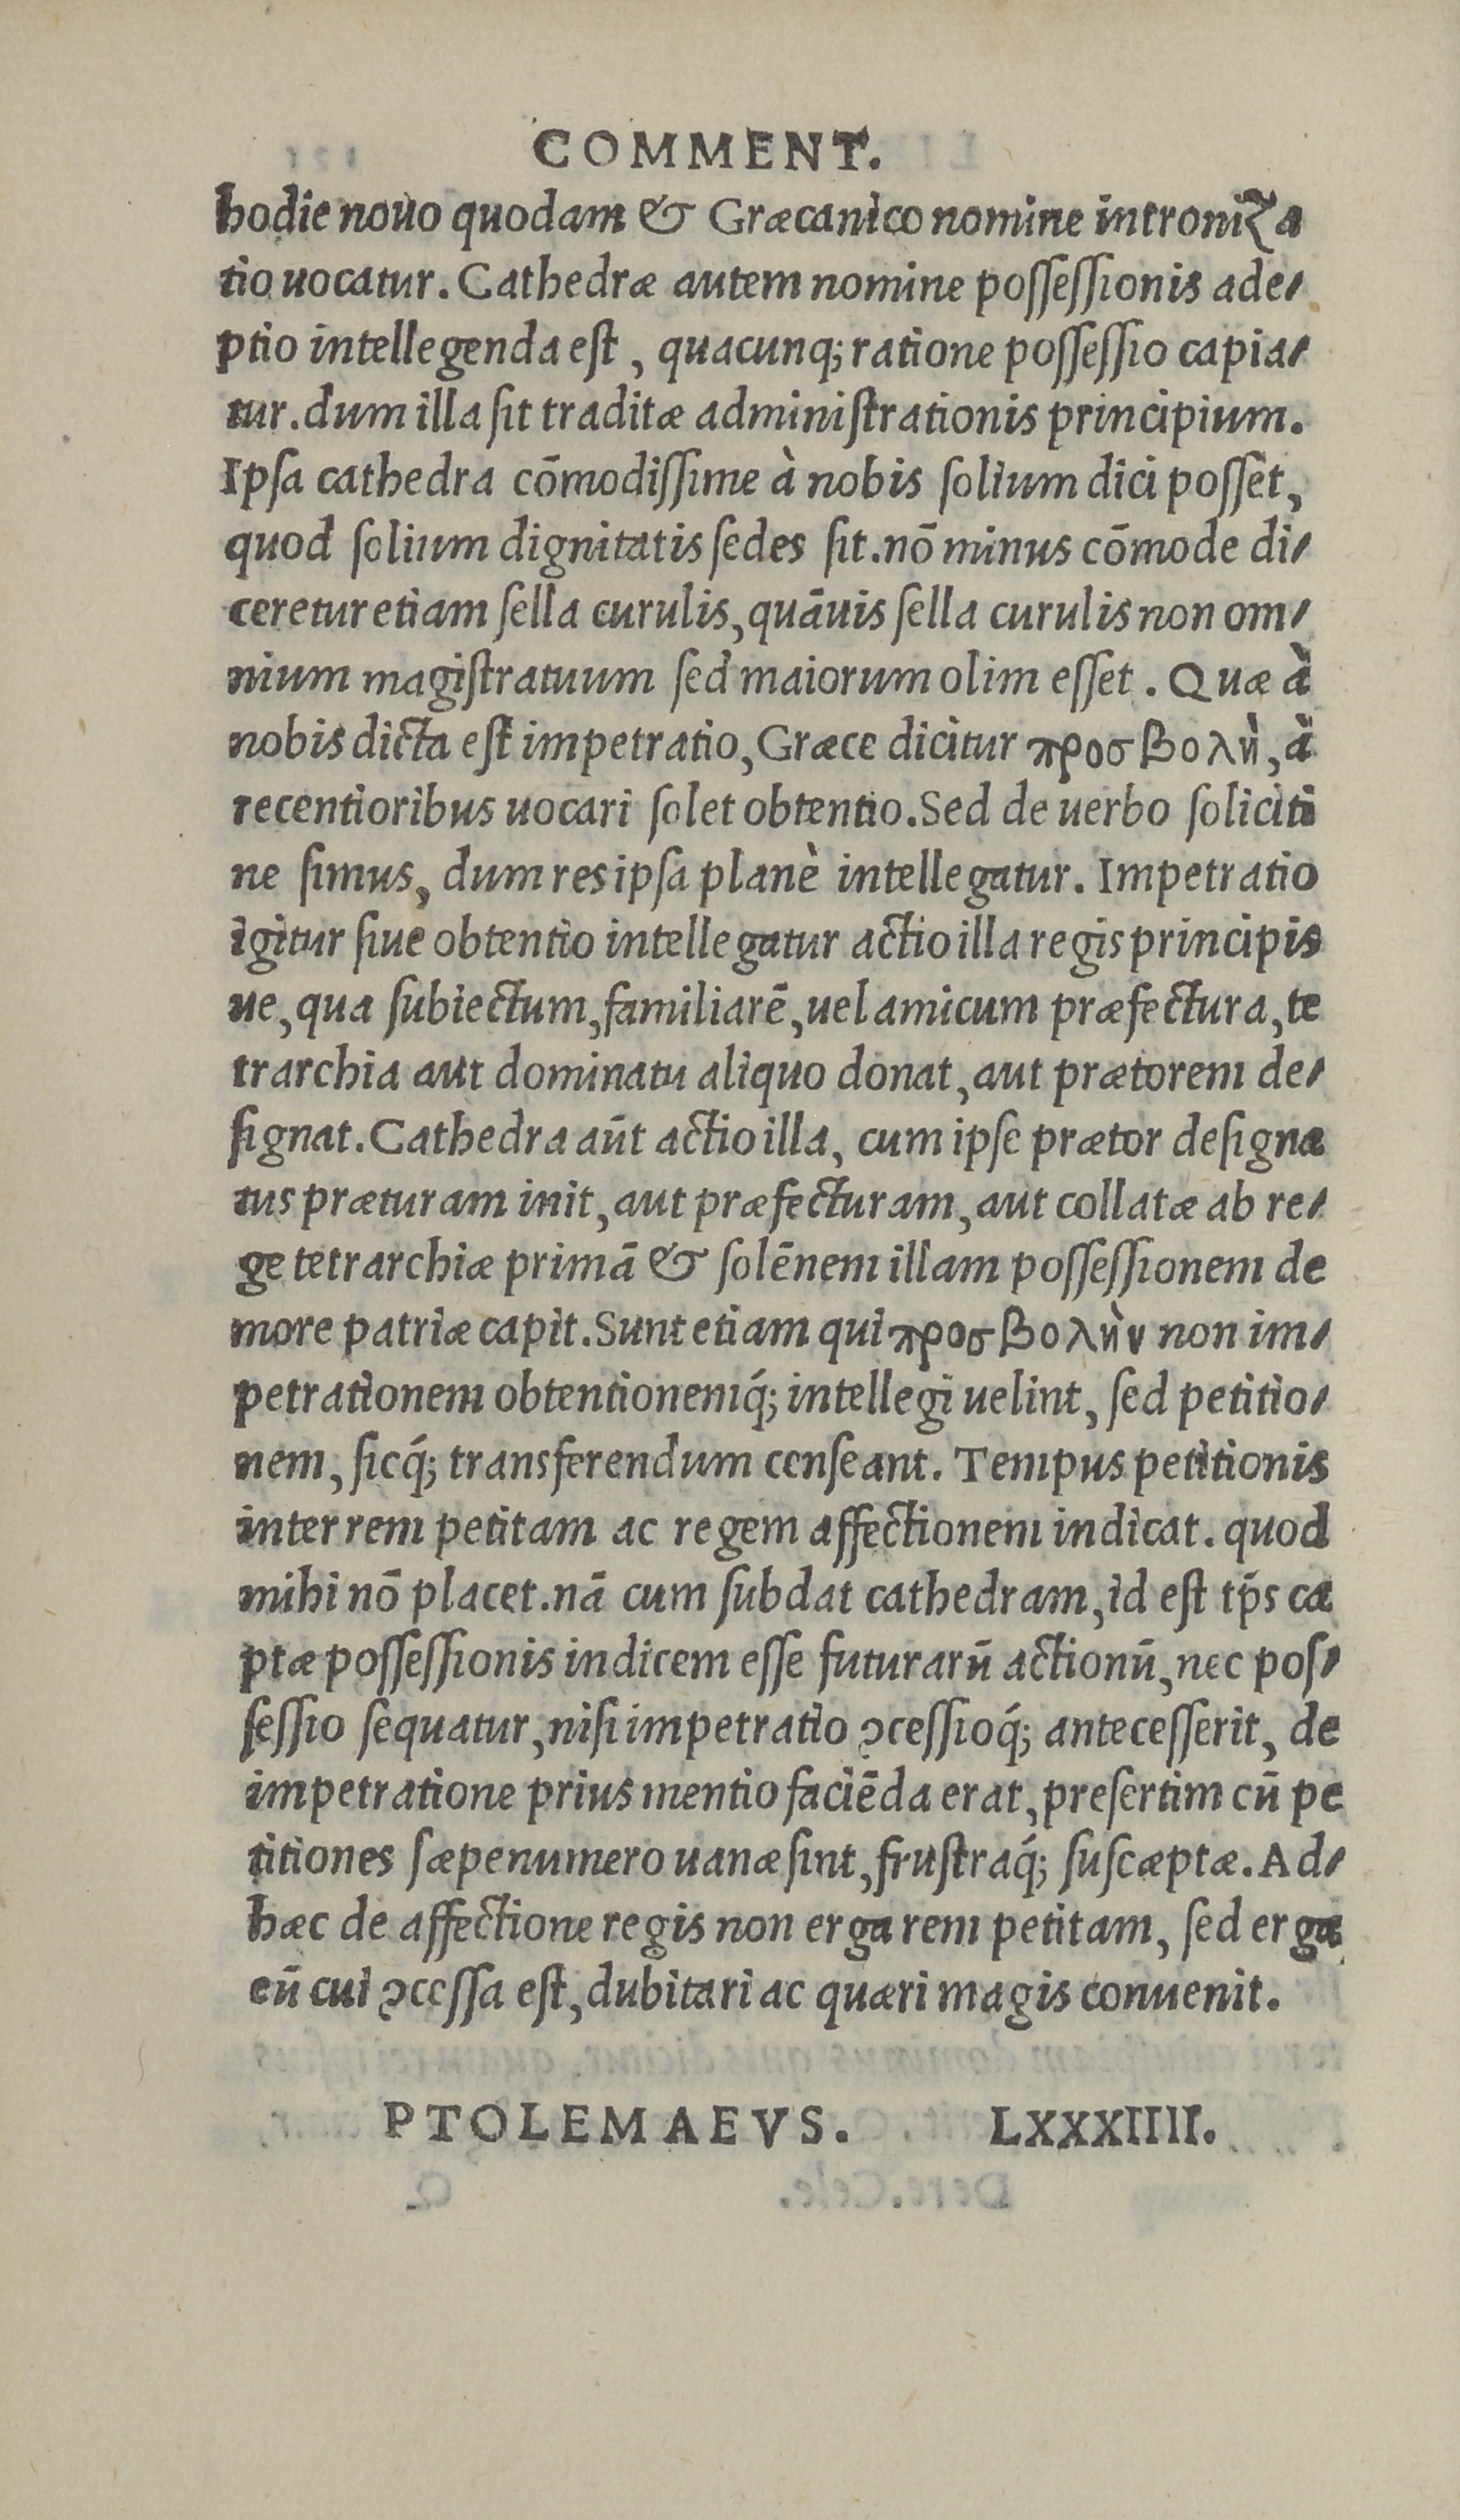 COMMENT.
hodie nouo quodam & Græcanico nomine introniza
tio uocatur. Cathedræ autem nomine possessionis ade/
ptio intellegenda est, quacunq; ratione possessio capia/
tur. dum illa sit traditæ administrationis principium.
Ipsa cathedra cōmodissime à nobis solium dici posset,
quod solium dignitatis sedes sit. nō minus cōmode di/
ceretur etiam sella curulis, quāuis sella curulis non om/
nium magistratuum sed maiorum olim esset. Quæ à
nobis dicta est impetratio, Græce dicitur προσβολὴ, à
recentioribus uocari solet obtentio. Sed de uerbo soliciti
ne simus, dum res ipsa planè intellegatur. Impetratio
igitur siue obtentio intellegatur actio illa regis principis
ue, qua subiectum, familiarē, uel amicum præfectura, te
trarchia aut dominatu aliquo donat, aut prætorem de/
signat. Cathedra aūt actio illa, cum ipse prætor designa
tus præturam init, aut præfecturam, aut collatæ ab re/
ge tetrarchiæ primā & solēnem illam possessionem de
more patriæ capit. Sunt etiam qui προσβολὴν non im/
petrationem obtentionemq́; intellegi uelint, sed petitio/
nem, sicq́; transferendum censeant. Tempus petitionis
inter rem petitam ac regem affectionem indicat. quod
mihi nō placet. nā cum subdat cathedram, id est tp̄s ca
ptæ possessionis indicem esse futurarū actionū, nec pos/
sessio sequatur, nisi impetratio ↄcessioq́; antecesserit, de
impetratione prius mentio faciēda erat, presertim cū pe
titiones sæpenumero uanæ sint, frustraq́; suscæptæ. Ad/
hæc de affectione regis non erga rem petitam, sed erga
eū cui ↄcessa est, dubitari ac quæri magis conuenit.
PTOLEMAEVS. LXXXIIII.